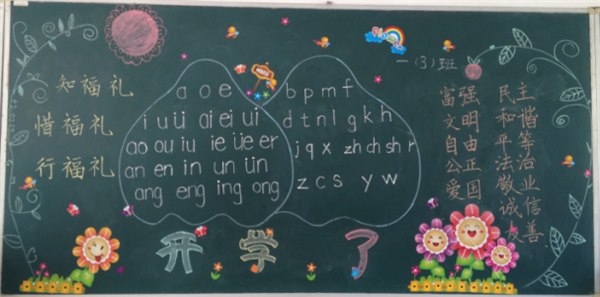 知福礼
惜福礼
行福礼
a o e
i u ü ai ei ui
ao ou iu ie üe er
an en in un ün
ang eng ing ong
b p m f
d t n l g k h
j q x zh ch sh r
z c s y w
一(3)班
富强
文明
自由
公正
爱国
民主
和谐
平等
法治
敬业
诚信
友善
开学了